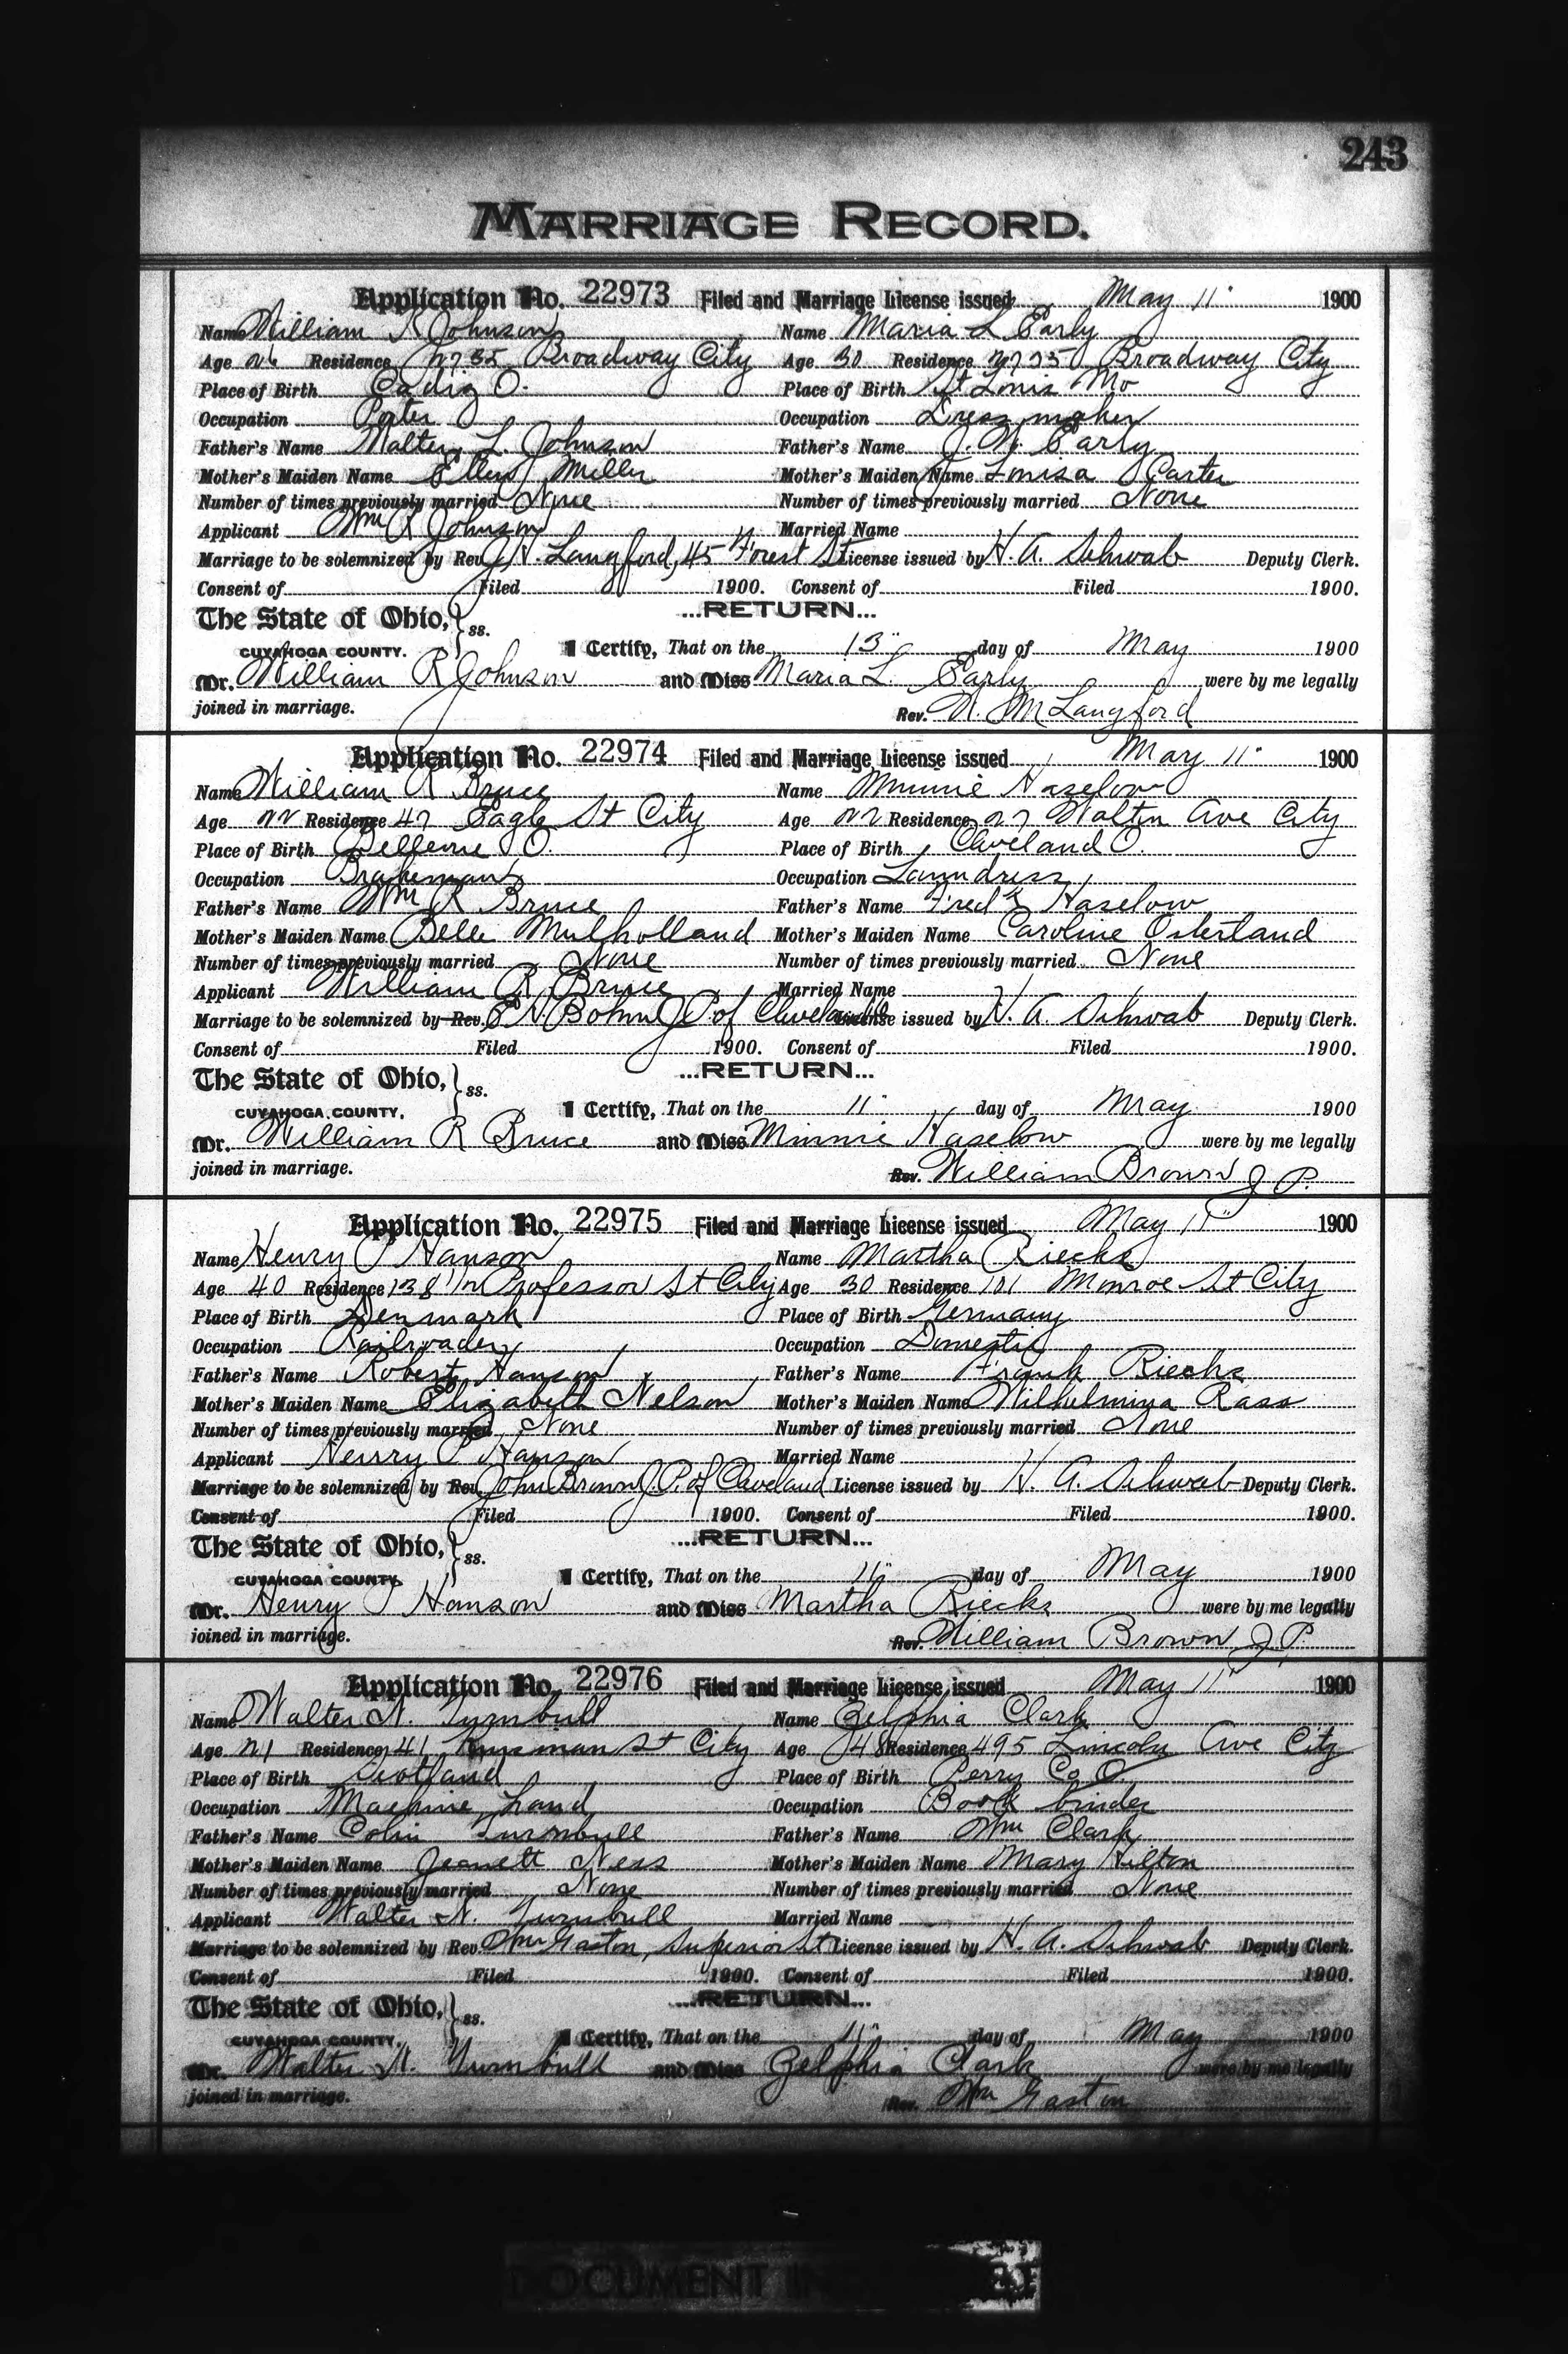 243
MARRIAGE RECORD.
Application No. 22973 Filed and Marriage License issued May 11" 1900
Name William R Johnson Name Maria L Early
Age 26 Residence 2735 Broadway City Age 30 Residence 2735 Broadway City
Place of Birth Cadiz O. Place of Birth St Louis Mo
Occupation Porter Occupation Dress maker
Father's Name Walter L. Johnson Father's Name J. W. Early
Mother's Maiden Name Ellen Miller Mother's Maiden Name Louisa Carter
Number of times previously married None Number of times previously married None
Applicant Wm R Johnson Married Name
Marriage to be solemnized by Rev. Langford, 45 Forest St License issued by H. A. Schwab Deputy Clerk.
Consent of Filed 1900. Consent of Filed 1900.
The State of Ohio, } ss. ...RETURN...
CUYAHOGA COUNTY. I Certify, That on the 13" day of May 1900
Mr. William R Johnson and Miss Maria L. Early were by me legally
joined in marriage. Rev. Langford
Application No. 22974 Filed and Marriage License issued May 11" 1900
Name William R Bruce Name Minnie Haselow
Age 22 Residence 42 Eagle St City Age 22 Residence 27 Walton Ave City
Place of Birth Bellevue O. Place of Birth Cleveland O.
Occupation Brakeman Occupation Laundress
Father's Name Wm R Bruce Father's Name Fredk Haselow
Mother's Maiden Name Belle Mulholland Mother's Maiden Name Caroline Osterland
Number of times previously married None Number of times previously married None
Applicant William R Bruce Married Name
Marriage to be solemnized by Rev. E H Bohm J P of Cleveland License issued by H. A. Schwab Deputy Clerk.
Consent of Filed 1900. Consent of Filed 1900.
The State of Ohio, } ss. ...RETURN...
CUYAHOGA COUNTY, I Certify, That on the 11" day of May 1900
Mr. William R Bruce and Miss Minnie Haselow were by me legally
joined in marriage. Rev. William Brown J P.
Application No. 22975 Filed and Marriage License issued May 11" 1900
Name Henry P Hanson Name Martha Riecks
Age 40 Residence 138 1/2 Professor St City Age 30 Residence 101 Monroe St City
Place of Birth Denmark Place of Birth Germany
Occupation Railroader Occupation Domestic
Father's Name Robert Hanson Father's Name Frank Riecks
Mother's Maiden Name Elizabeth Nelson Mother's Maiden Name Wilhelmina Rass
Number of times previously married None Number of times previously married None
Applicant Henry P Hanson Married Name
Marriage to be solemnized by Rev. John Brown J. P. of Cleveland License issued by H. A. Schwab Deputy Clerk.
Consent of Filed 1900. Consent of Filed 1900.
The State of Ohio, } ss. ...RETURN...
CUYAHOGA COUNTY. I Certify, That on the 11" day of May 1900
Mr. Henry P Hanson and Miss Martha Riecks were by me legally
joined in marriage. Rev. William Brown J. P.
Application No. 22976 Filed and Marriage License issued May 11" 1900
Name Walter N. Turnbull Name Zelphia Clark
Age 21 Residence 41 Kinsman St City Age 18 Residence 495 Lincoln Ave City
Place of Birth Scotland Place of Birth Perry Co O
Occupation Machine hand Occupation Book binder
Father's Name Colin Turnbull Father's Name Wm Clark
Mother's Maiden Name Jeanett Ness Mother's Maiden Name Mary Hilton
Number of times previously married None Number of times previously married None
Applicant Walter N. Turnbull Married Name
Marriage to be solemnized by Rev. Wm Gaston, Superior St License issued by H. A. Schwab Deputy Clerk.
Consent of Filed 1900. Consent of Filed 1900.
The State of Ohio, } ss. ...RETURN...
CUYAHOGA COUNTY. I Certify, That on the 11" day of May 1900
Mr. Walter N. Turnbull and Miss Zelphia Clark were by me legally
joined in marriage. Rev. Wm Gaston
DOCUMENT